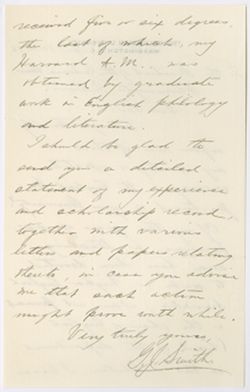 received five or six degrees,
the last of which, my
Harvard A.M., was
obtained by graduate
work in English philology
and literature.
I should be glad to
send you a detailed
statement of my experience
and scholarship record,
together with various
letters and papers relating
thereto, in case you advise
me that such action
might prove worth while.
Very truly yours,
Smith